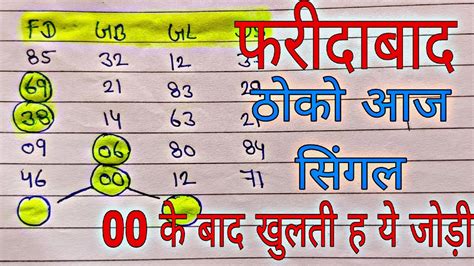 FD GB GL
85 32 12
69 21 83
38 14 63
09 06 80 84
46 00 12 71
फरीदाबाद
ठोको आज
सिंगल
00 के बाद खुलती ह ये जोड़ी